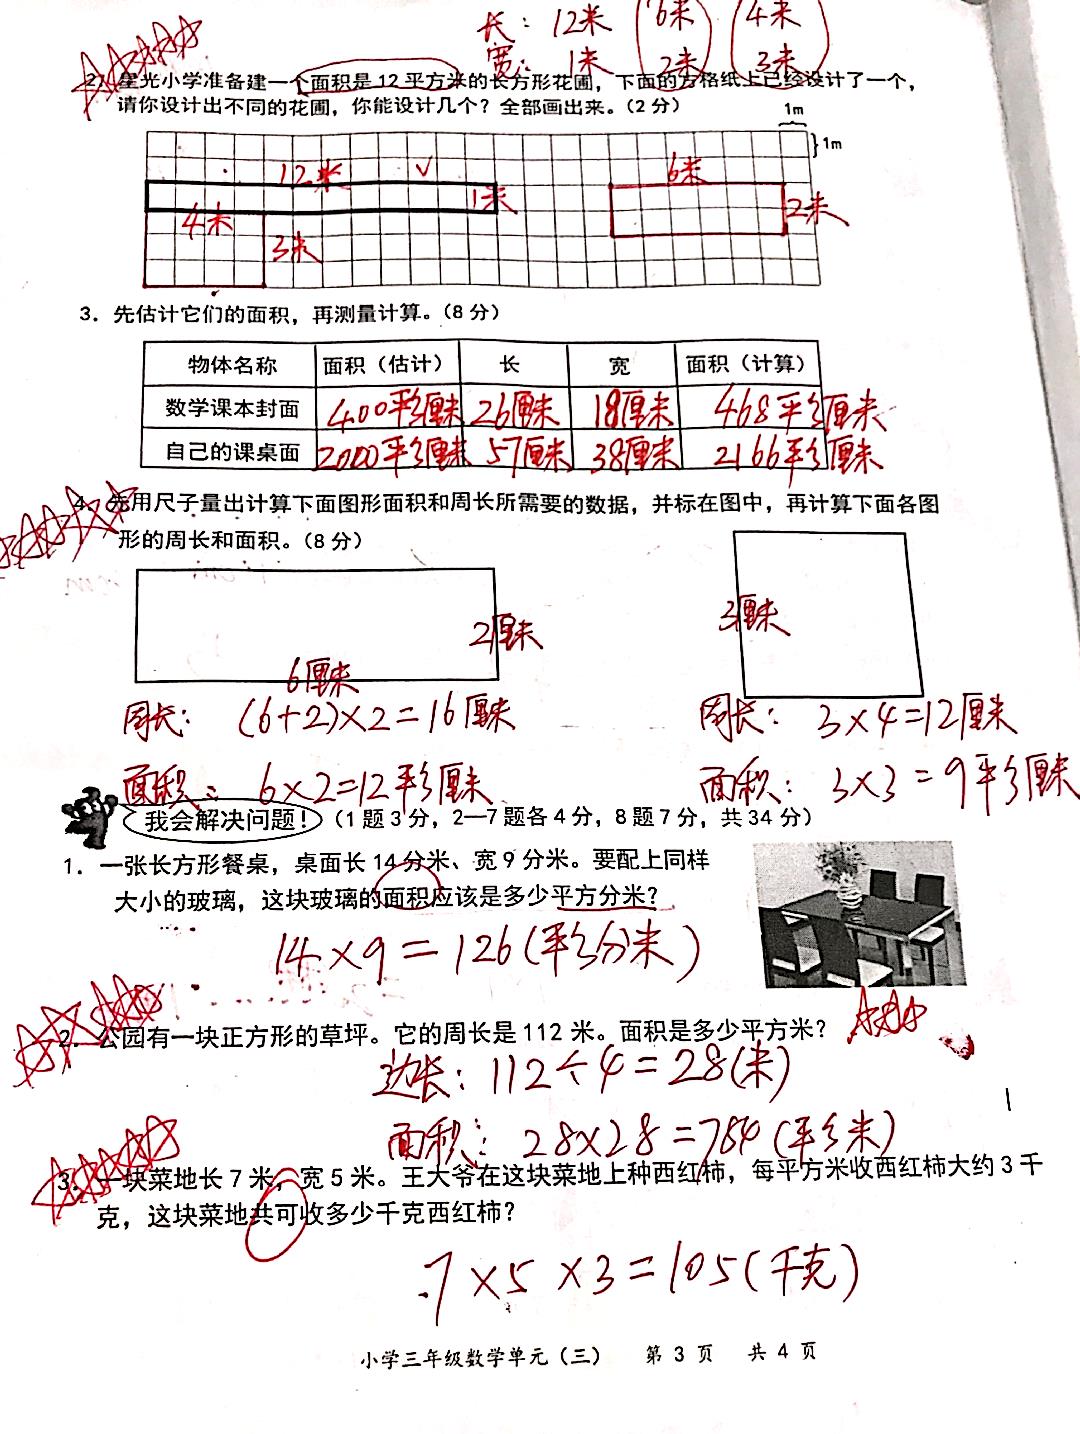 长：12米 6米 4米
宽：1米 2米 3米
2. 星光小学准备建一个面积是12平方米的长方形花圃，下面的方格纸上已经设计了一个，
请你设计出不同的花圃，你能设计几个？全部画出来。（2分）
1m
1m
12米 √ 6米
1米 2米
4米
3米
3．先估计它们的面积，再测量计算。（8分）
物体名称 面积（估计） 长 宽 面积（计算）
数学课本封面 400平方厘米 26厘米 18厘米 468平方厘米
自己的课桌面 2000平方厘米 57厘米 38厘米 2166平方厘米
4．先用尺子量出计算下面图形面积和周长所需要的数据，并标在图中，再计算下面各图
形的周长和面积。（8分）
2厘米 3厘米
6厘米
周长：(6+2)×2=16厘米 周长：3×4=12厘米
面积：6×2=12平方厘米 面积：3×3=9平方厘米
我会解决问题！（1题3分，2—7题各4分，8题7分，共34分）
1．一张长方形餐桌，桌面长14分米、宽9分米。要配上同样
大小的玻璃，这块玻璃的面积应该是多少平方分米？
14×9=126(平方分米)
2．公园有一块正方形的草坪。它的周长是112米。面积是多少平方米？
边长：112÷4=28(米)
面积：28×28=784(平方米)
3．一块菜地长7米，宽5米。王大爷在这块菜地上种西红柿，每平方米收西红柿大约3千
克，这块菜地共可收多少千克西红柿？
7×5×3=105(千克)
小学三年级数学单元（三） 第3页 共4页